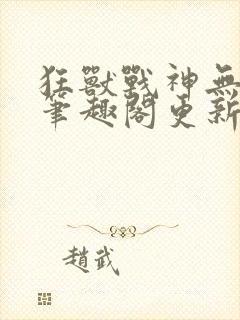 狂獸戰神無
筆趣閣更新
趙武